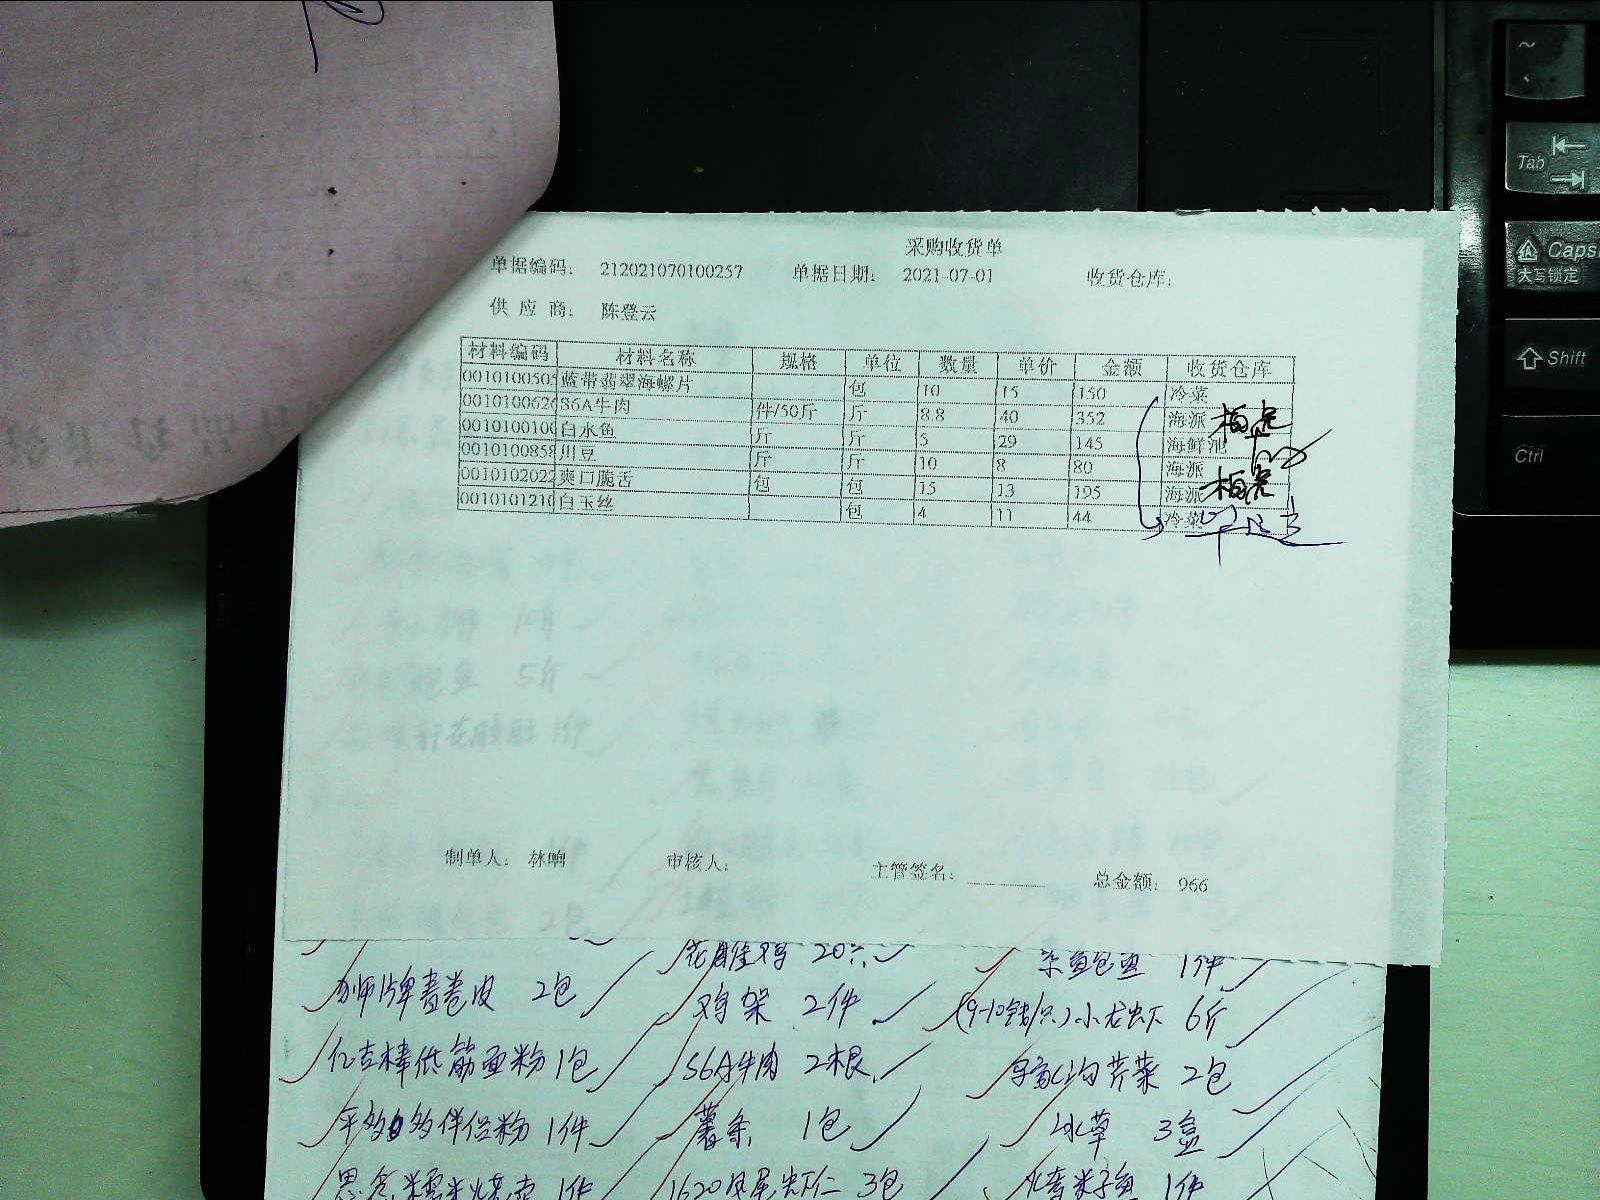 采购收货单
单据编码: 212021070100257 单据日期: 2021-07-01 收货仓库:
供应商: 陈登云
材料编码 材料名称 规格 单位 数量 单价 金额 收货仓库
0010100505 蓝带翡翠海螺片 包 10 15 150 冷菜
0010100626 S6A牛肉 件/50斤 斤 8.8 40 352 海派
0010100100 白水鱼 斤 斤 5 29 145 海鲜池
0010100858 川豆 斤 斤 10 8 80 海派
0010102022 爽口脆舌 包 包 15 13 195 海派
0010101210 白玉丝 包 4 11 44 冷菜
制单人: 林响 审核人: 主管签名: 总金额: 966
花雕鸡 20只 1件
狮牌春卷皮 2包 鸡架 2件 (9-10钱/只)小龙虾 6斤
低筋面粉 1包 S6A牛肉 2根 芹菜 2包
1件 薯条 1包 冰草 3盒
1件 1620凤尾虾仁 3包 1件
~
Tab
Caps
大写锁定
Shift
Ctrl